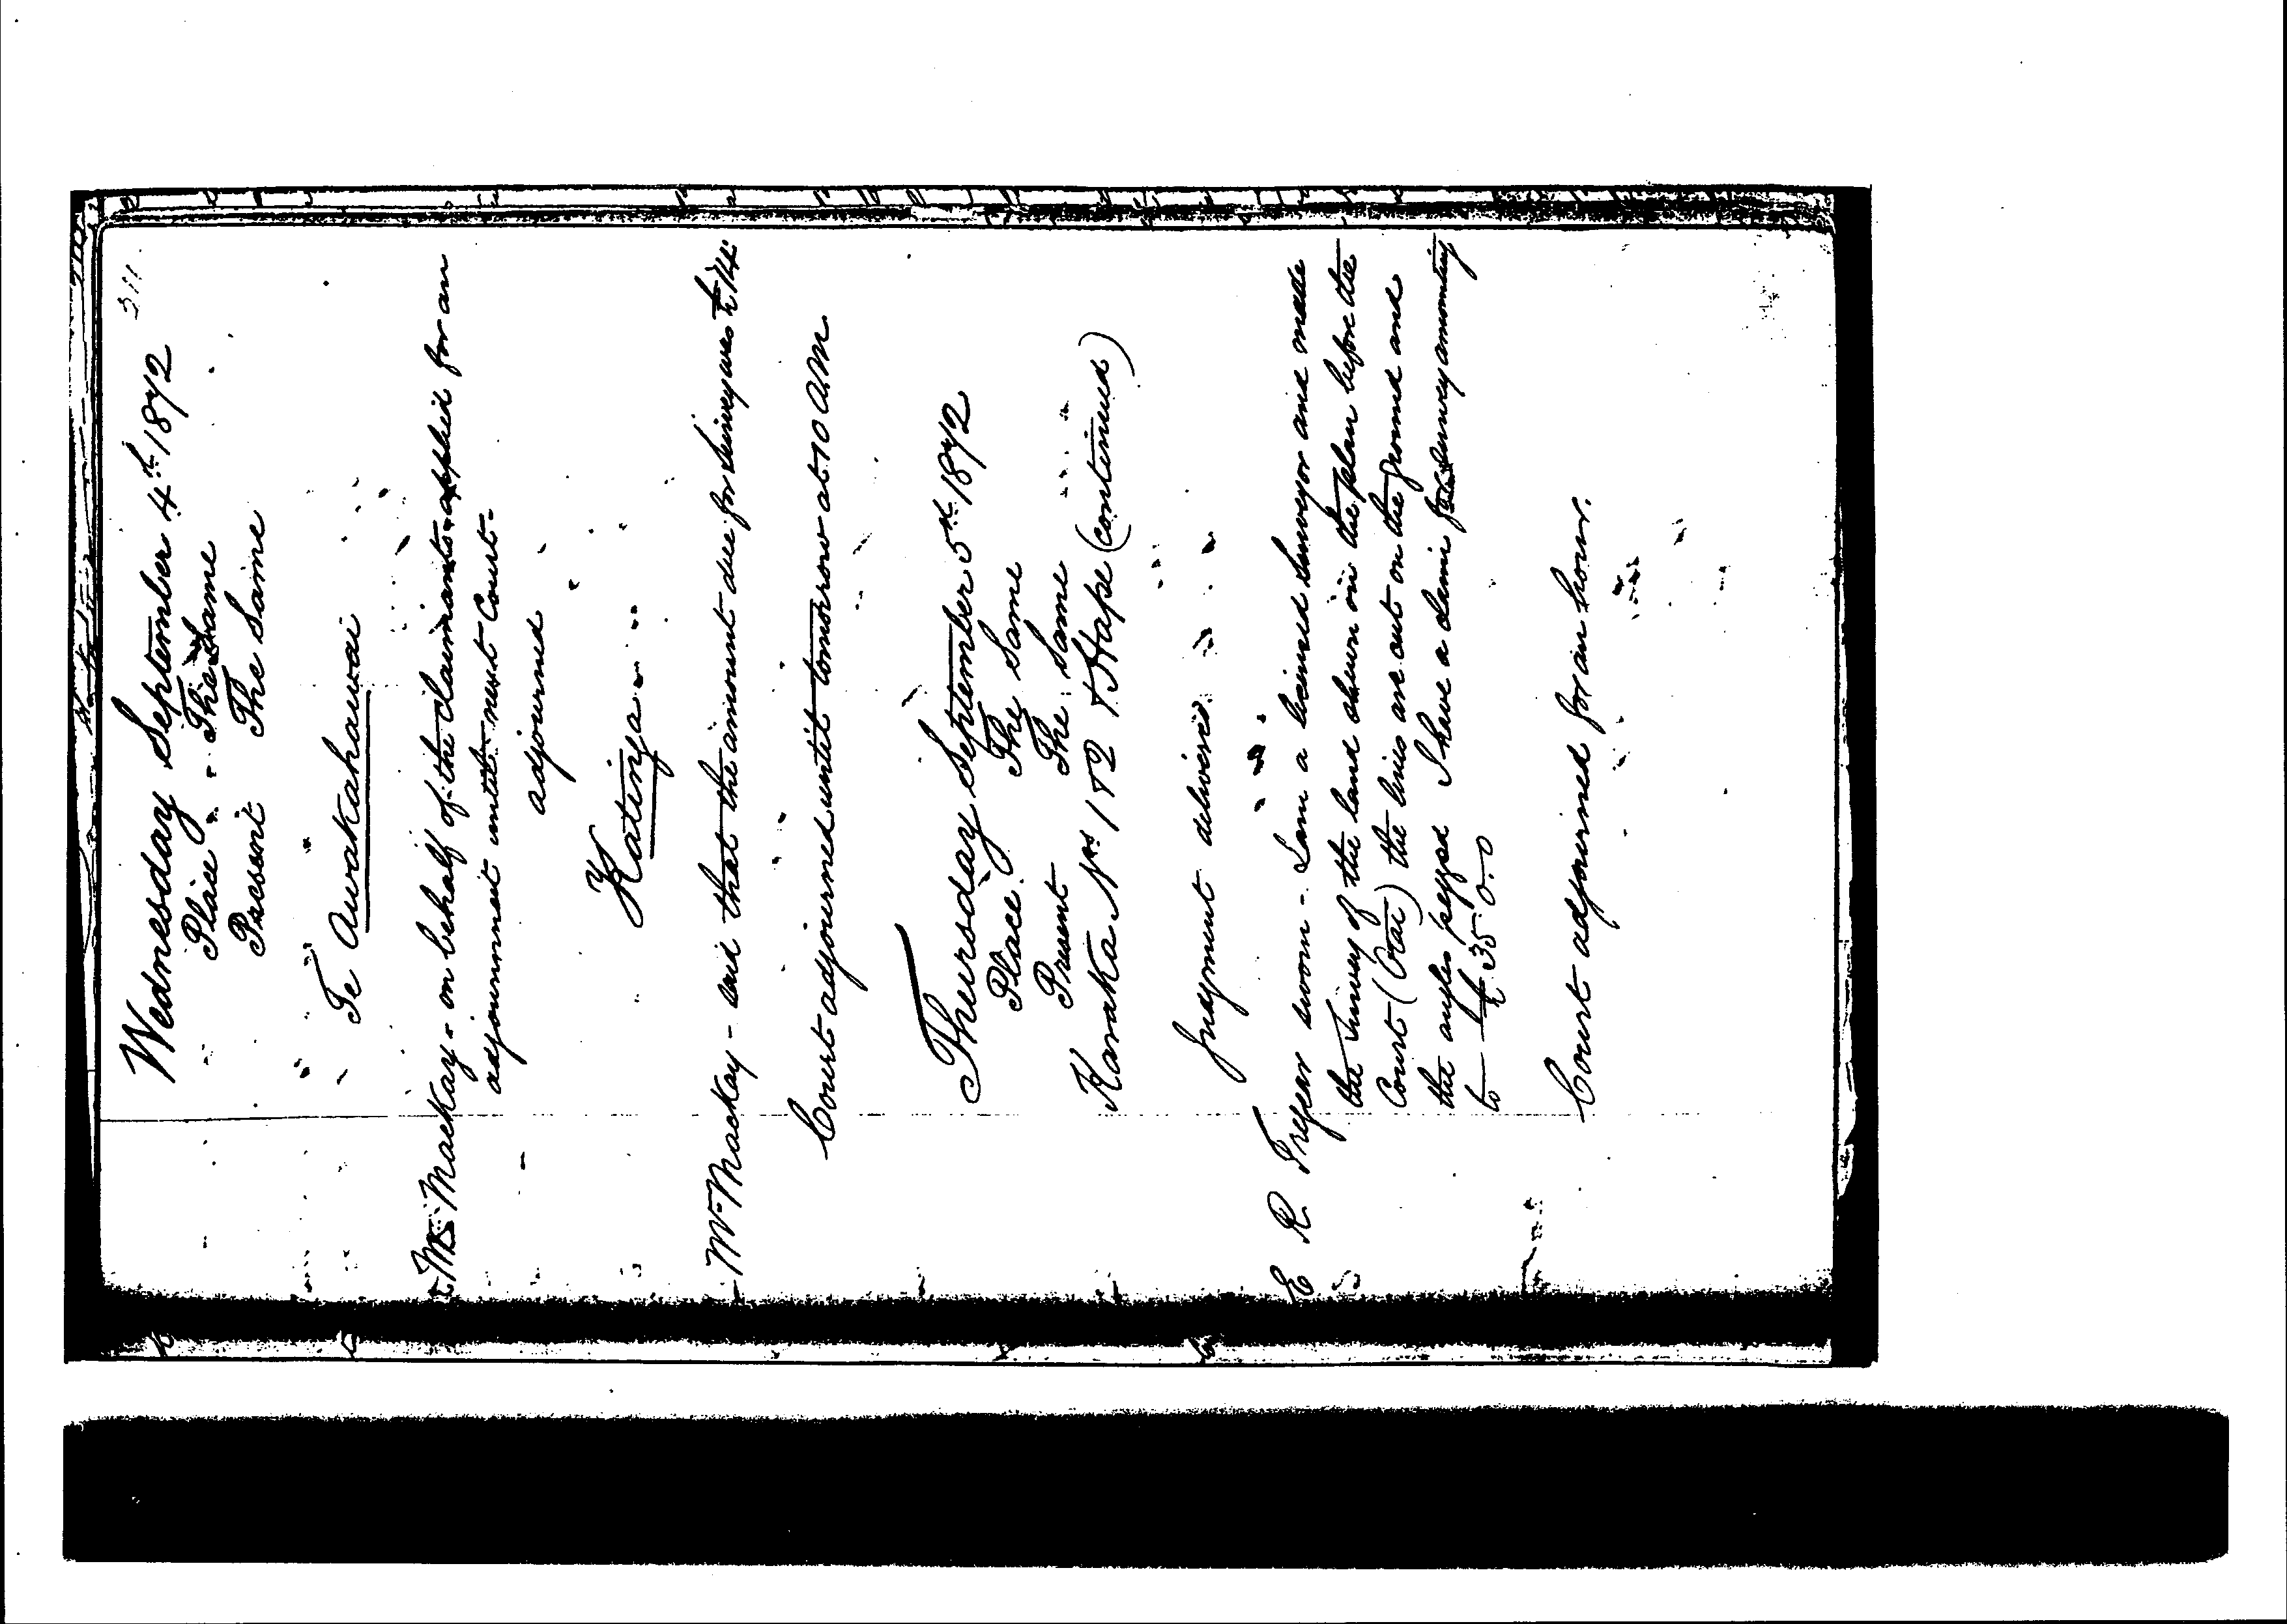 311
Wednesday September 4th 1872
Place - The Same
Present The Same
Te Awakahawai
Mr Mackay - on behalf of the claimants applied for an
adjournment until next Court -
adjourned
Katinga
Mr Mackay - said that the amount due for Survey was £14
Court adjourned until tomorrow at 10 AM
Thursday September 5th 1872
Place The Same
Present The Same
Karaka Nos 1 & 2 & Hape (continued)
Judgment delivered.
E R sworn - I am a licensed Surveyor and made
the Survey of the land shewn on the plan before the
Court ( ) the lines are cut on the ground and
the angles pegged I have a claim for survey amounting
to £35.0.0
Court adjourned for an hour.